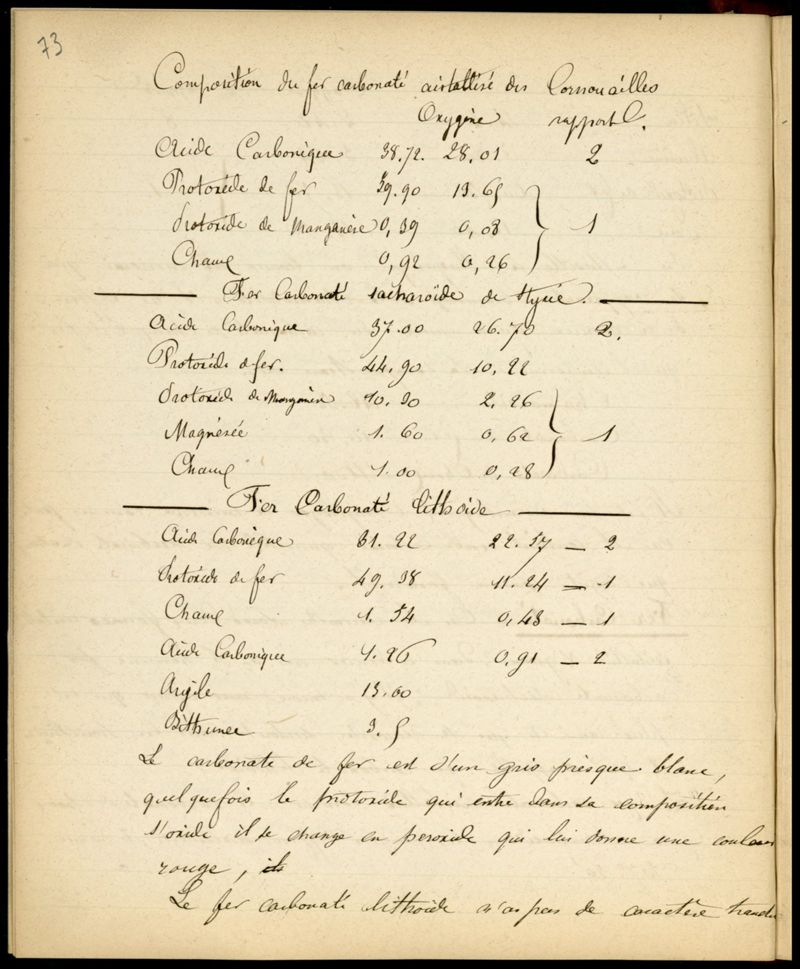 73
Composition du fer carbonaté cristallisé des Cornouailles
Oxygène rapport
Acide Carbonique 38.72. 28.01 2
Protoxide de fer 59.90 13.65
Protoxide de Manganèse 0,39 0,08 1
Chaux 0,92 0,26
Fer Carbonaté sacharoïde de
Acide Carbonique 37.00 26.70 2.
Protoxide de fer. 44.90 10,22
Protoxide de Manganèse 10.30 2,26
Magnésie 1.60 0,62 1
Chaux 1.00 0,28
Fer Carbonaté lithoide
Acide Carbonique 31.22 22.57 — 2
Protoxide de fer 49.38 11.24 — 1
Chaux 1.54 0,43 — 1
Acide Carbonique 1.26 0.91 — 2
Argile 13.60
Bithume 3.5
Le carbonate de fer est d'un gris presque blanc,
quelquefois le protoxide qui entre dans sa composition
s'oxide il se change en peroxide qui lui donne une couleur
rouge,
Le fer carbonaté lithoide n'a pas de caractère